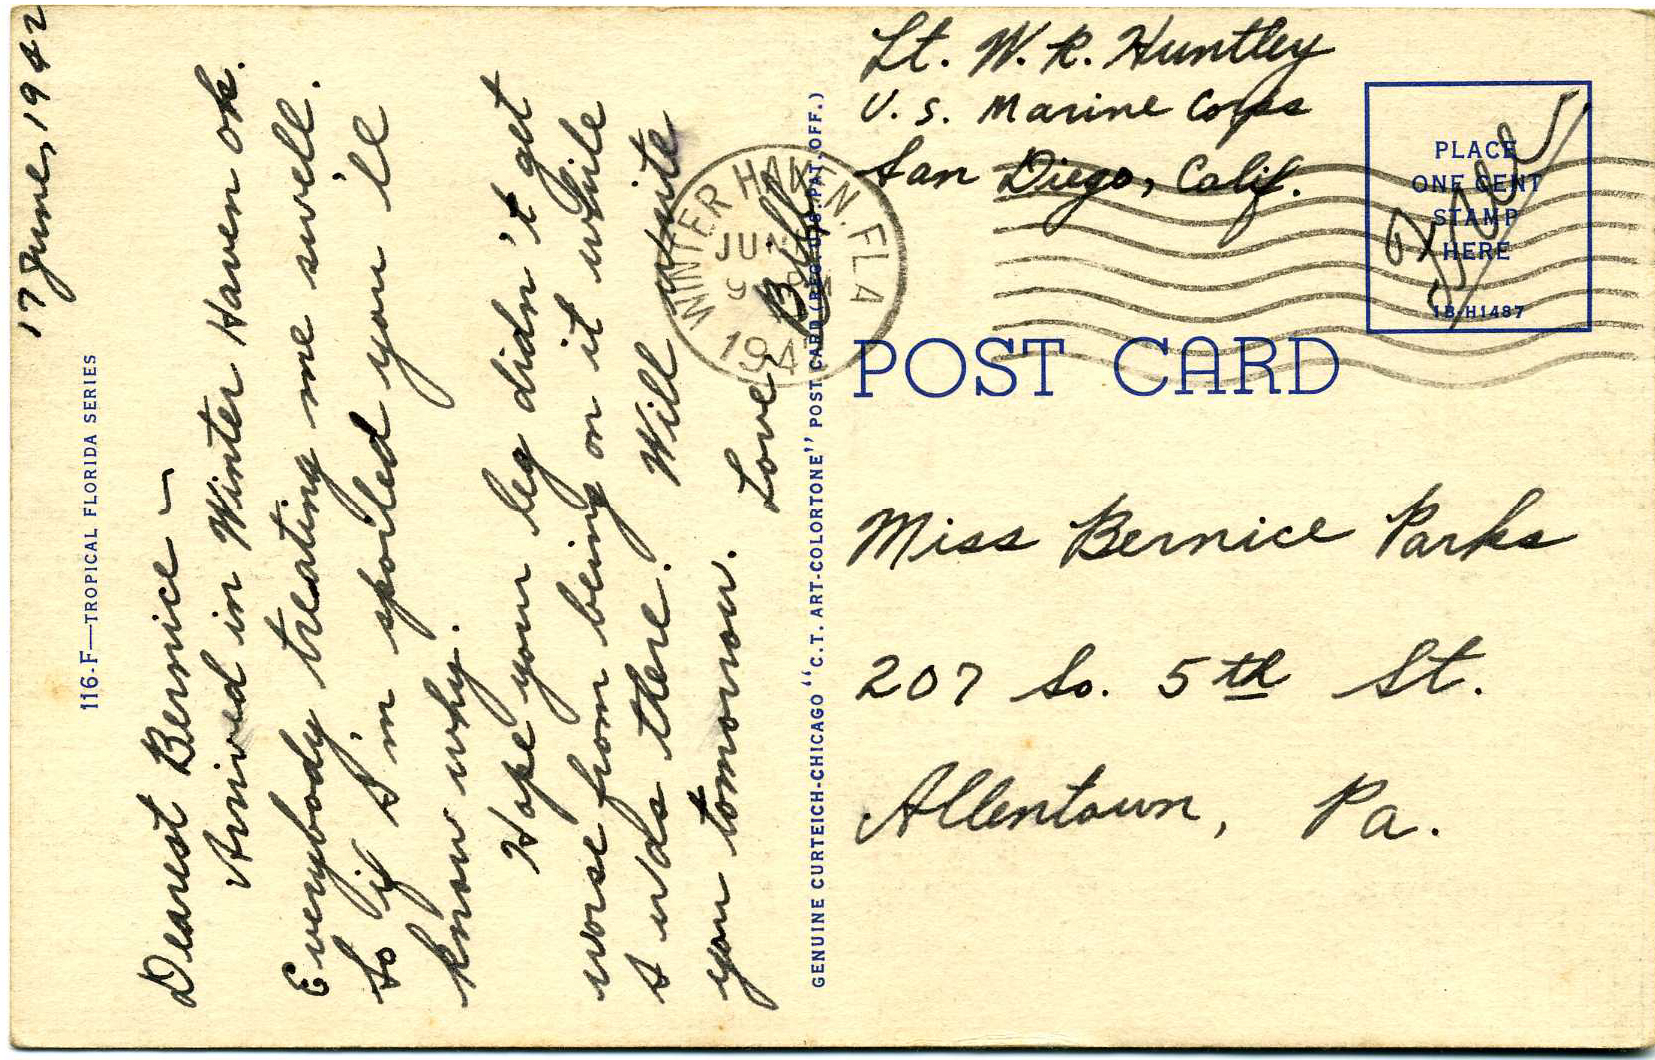 17 June, 1942
116-F—TROPICAL FLORIDA SERIES
Dearest Bernice —
Arrived in Winter Haven ok.
Everybody treating me swell.
So if I'm spoiled you'll
know why.
Hope your leg didn't get
worse from being on it while
I was there. Will write
you tomorrow.
Love, Bill
GENUINE CURTEICH-CHICAGO "C.T. ART-COLORTONE" POST CARD (REG. U.S. PAT. OFF.)
WINTER HAVEN. FLA
JUN
194
Lt. W. R. Huntley
U. S. Marine Corps
San Diego, Calif.
Free
PLACE
ONE CENT
STAMP
HERE
1B-H1487
POST CARD
Miss Bernice Parks
207 So. 5th St.
Allentown, Pa.